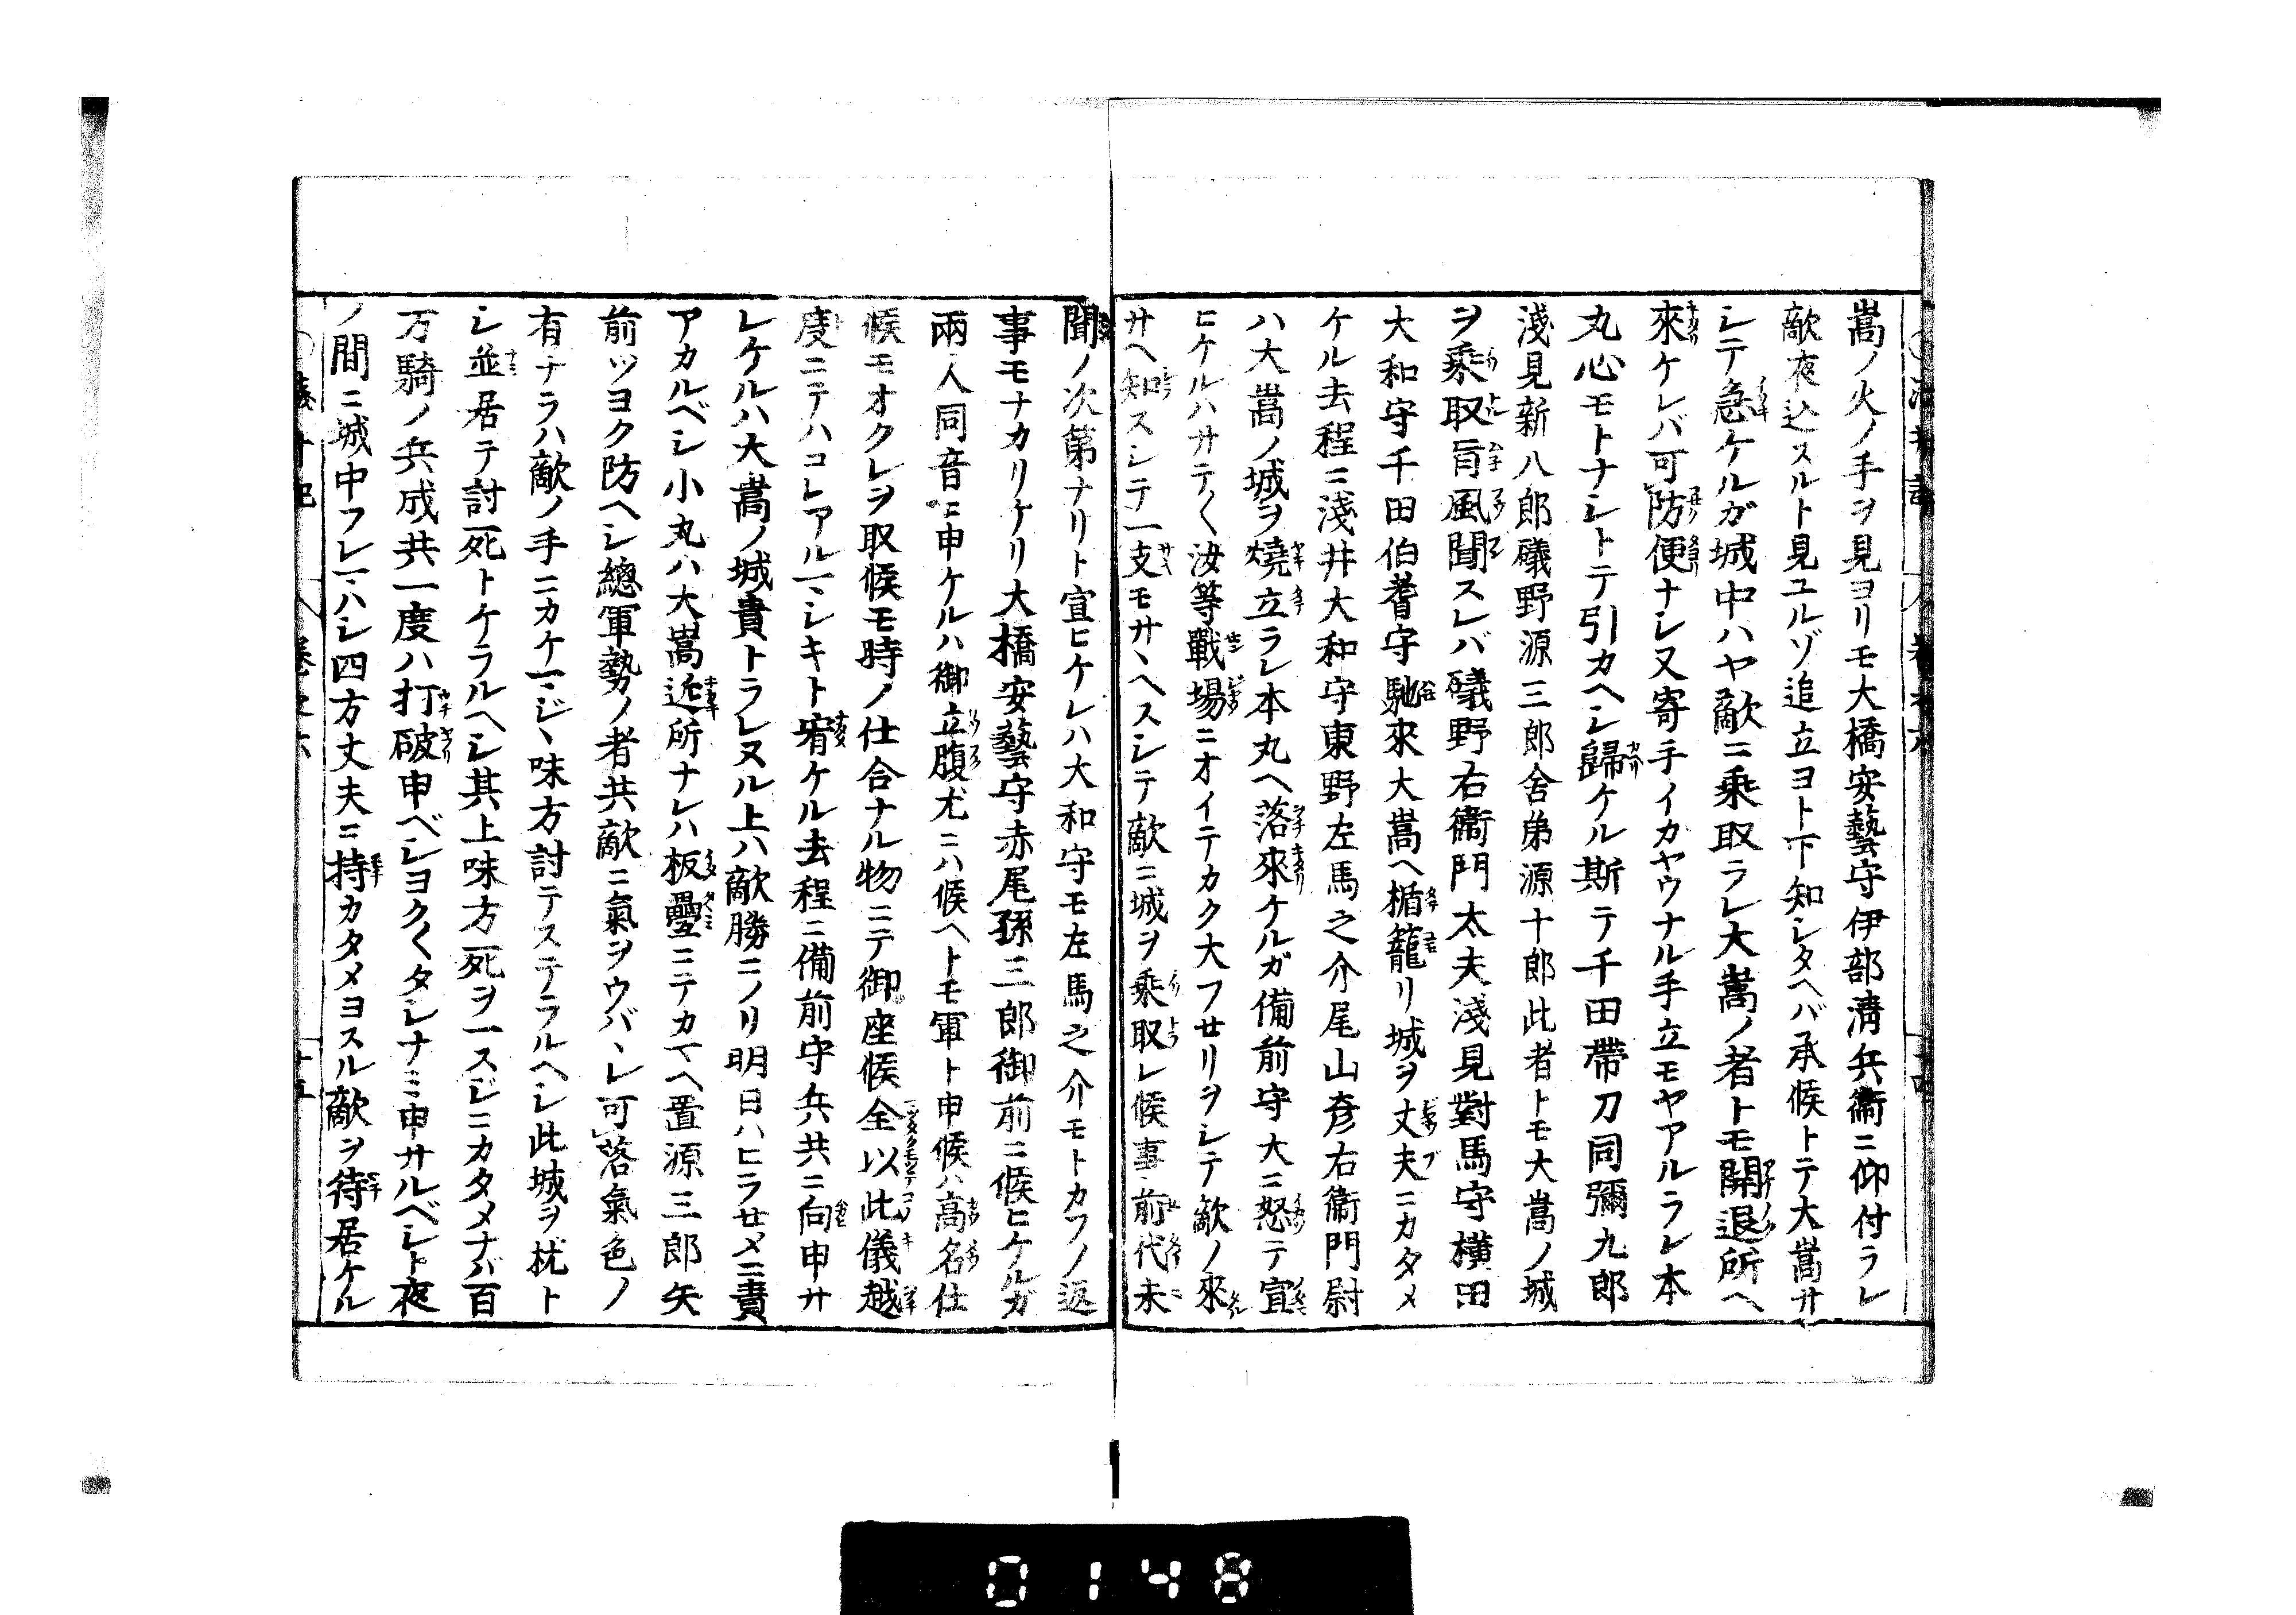 嵩ノ火ノ手ヲ見ヨリモ大橋安藝守伊部淸兵衞ニ仰付ラレ
敵夜込スルト見ユルゾ追立ヨト下知シタヘバ承候トテ大嵩サ
シテ急ケルガ城中ハヤ敵ニ乗取ラレ大嵩ノ者トモ開退所ヘ
來ケレバ可防便ナシ又寄手イカヤウナル手立モヤアルラレ本
丸心モトナシトテ引カヘシ歸ケル斯テ千田帶刀同彌九郎
淺見新八郎礒野源三郎舍弟源十郎此者トモ大嵩ノ城
ヲ乗取旨風聞スレバ礒野右衞門太夫淺見對馬守横田
大和守千田伯耆守馳來大嵩ヘ楯籠リ城ヲ丈夫ニカタメ
ケル去程ニ淺井大和守東野左馬之介尾山彦右衞門尉
ハ大嵩ノ城ヲ燒立ラレ本丸ヘ落來ケルガ備前守大ニ怒テ宣
ヒケルハサテ〱汝等戰場ニオイテカク大フセリヲシテ敵ノ來
サヘ知スシテ一支モサヽヘスシテ敵ニ城ヲ乗取レ候事前代未
聞ノ次第ナリト宣ヒケレハ大和守モ左馬之介モトカフノ返
事モナカリケリ大橋安藝守赤尾孫三郎御前ニ候ヒケルガ
兩人同音ニ申ケルハ御立腹尤ニハ候ヘトモ軍ト申候ハ高名仕
候モオクレヲ取候モ時ノ仕合ナル物ニテ御座候全以此儀越
度ニテハコレアルマシキト宥ケル去程ニ備前守兵共ニ向申サ
レケルハ大嵩ノ城責トラレヌル上ハ敵勝ニノリ明日ハヒラせメニ責
アカルベシ小丸ハ大嵩近所ナレハ板疊ニテカマヘ置源三郎矢
前ツヨク防ヘシ總軍勢ノ者共敵ニ氣ヲウバヽレ可落氣色ノ
有ナラハ敵ノ手ニカケマジヽ味方討テステラルヘシ此城ヲ枕ト
シ並居テ討死トケラルヘシ其上味方死ヲ一スジニカタメナバ百
万騎ノ兵成共一度ハ打破申ベシヨク〱タシナミ申サルベシト夜
ノ間ニ城中フレマハシ四方丈夫ニ持カタメヨスル敵ヲ待居ケル